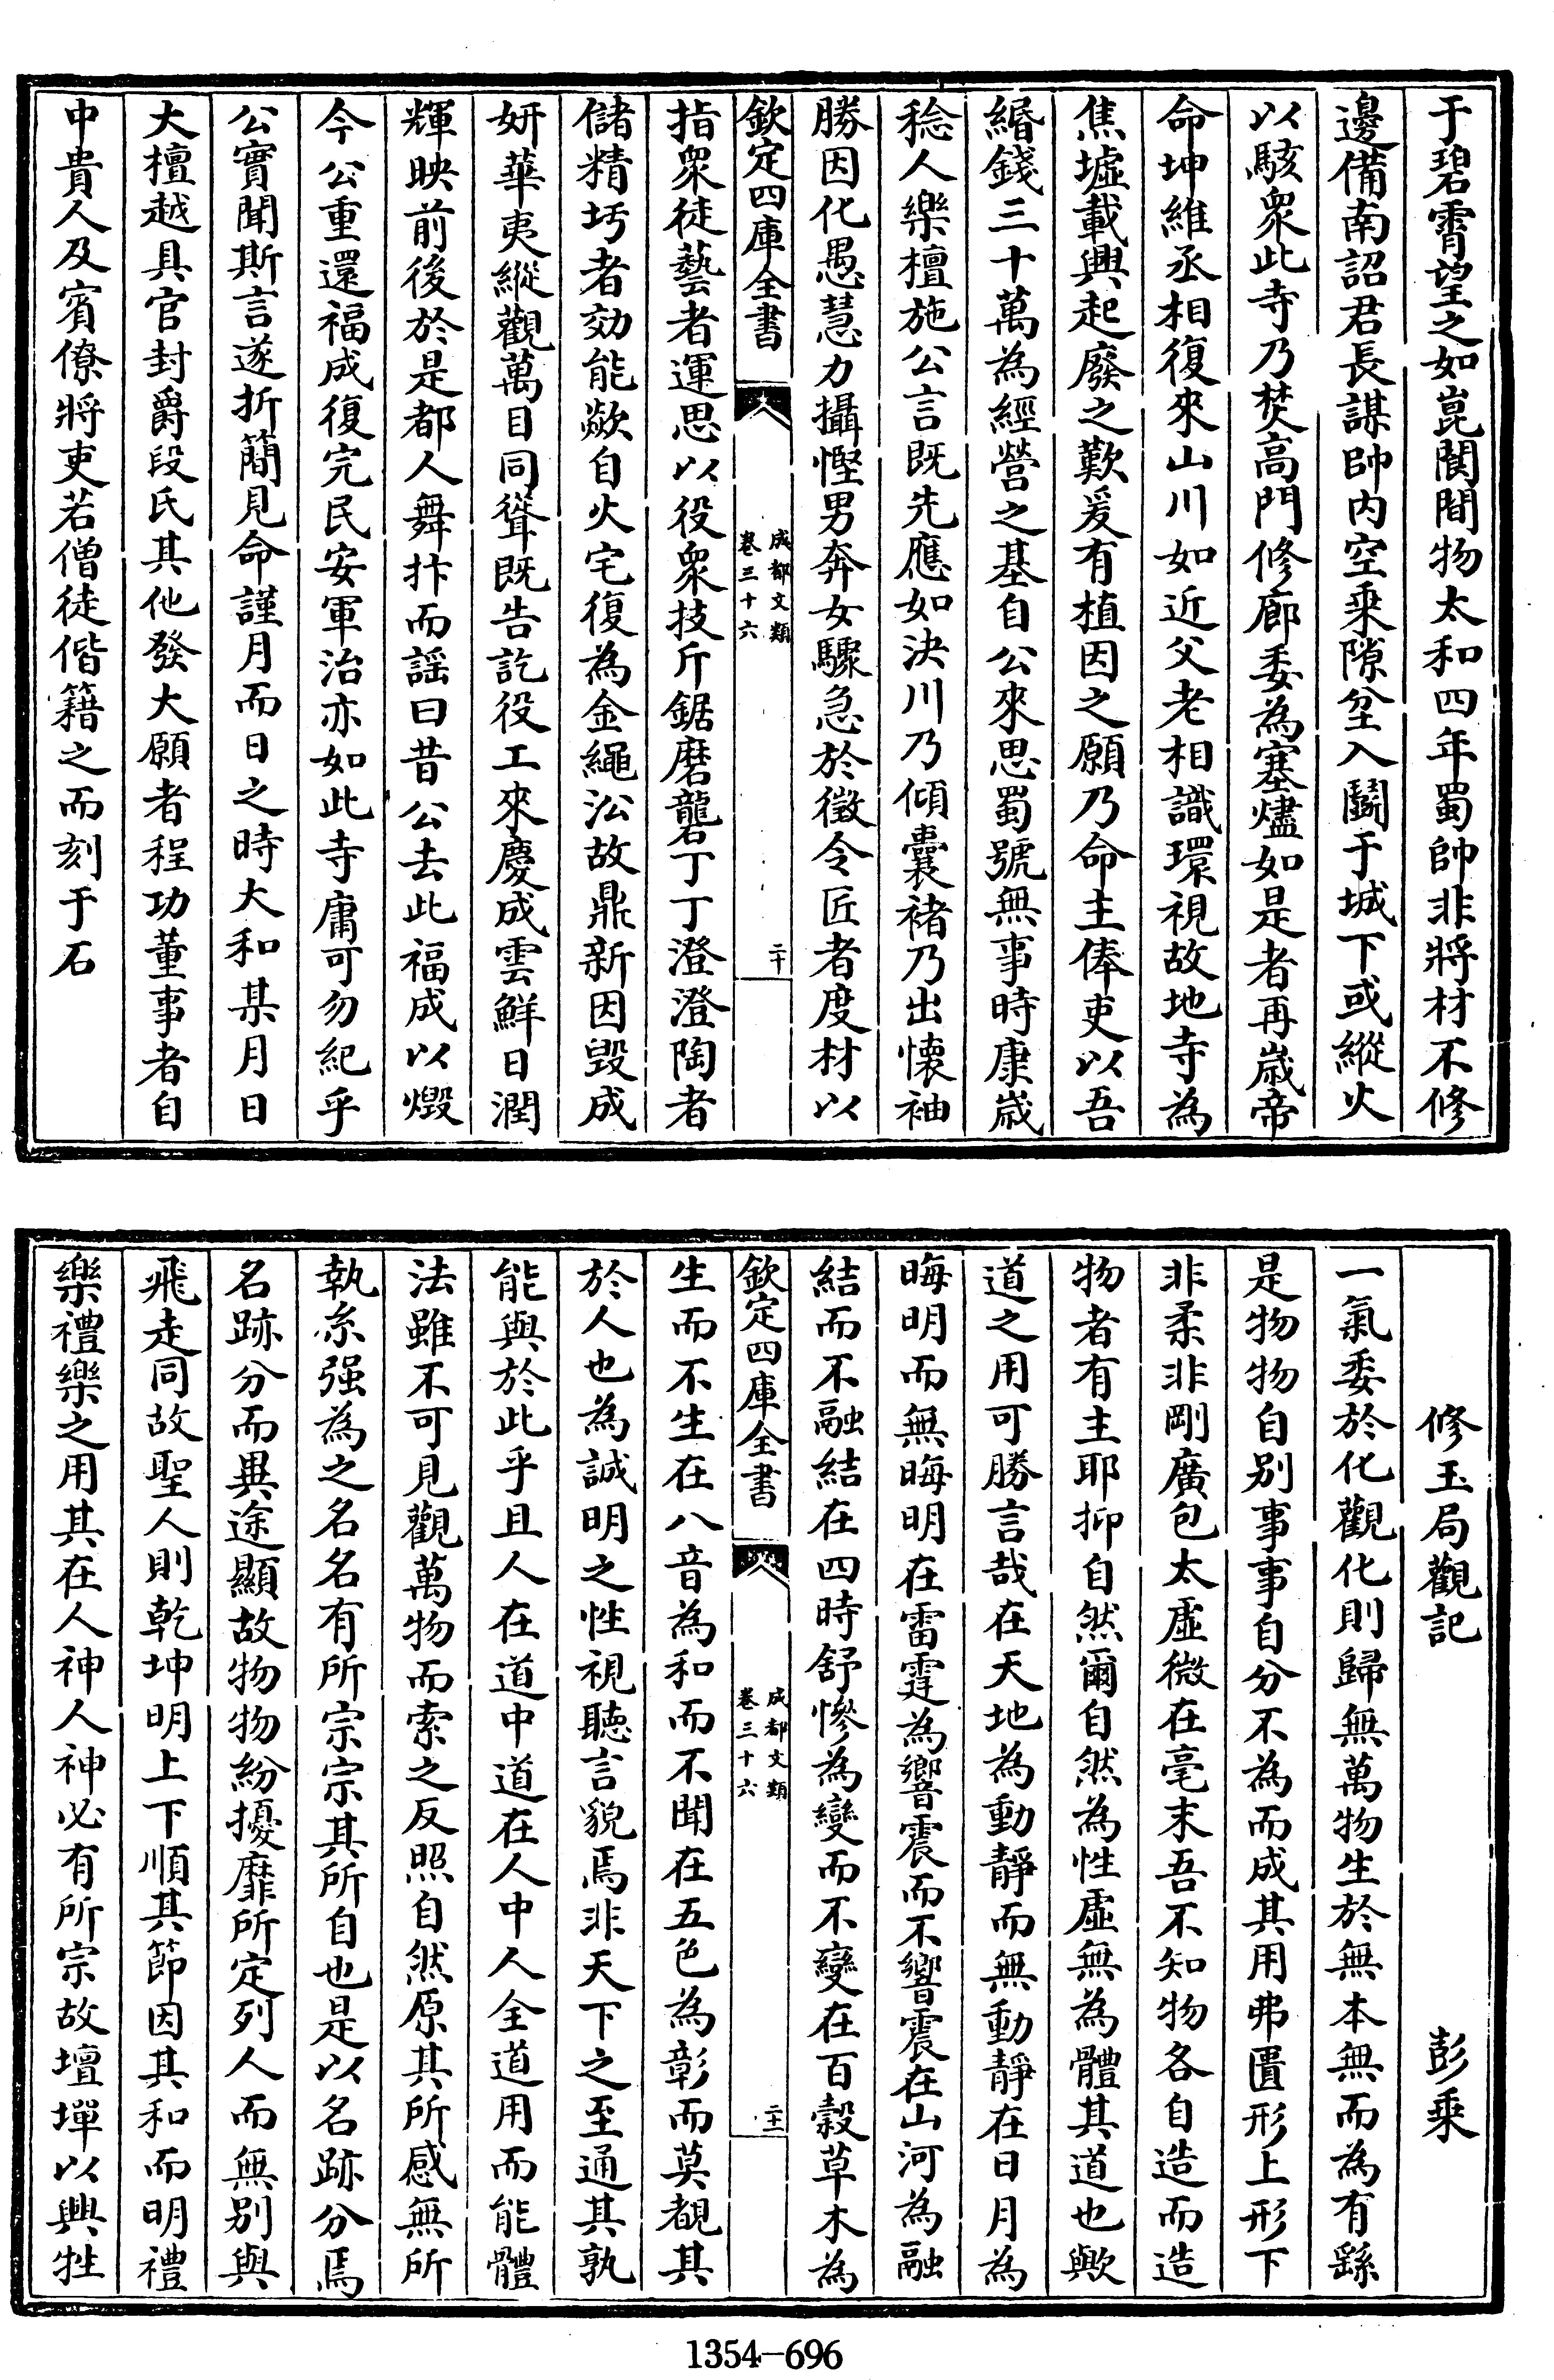 于碧霄望之如崑閬間物太和四年蜀帥非將材不修
邊備南詔君長謀帥内空乘隙坌入鬭于城下或縱火
以駭衆此寺乃焚高門修廊委為塞燼如是者再嵗帝
命坤維丞相復來山川如近父老相識環視故地寺為
焦墟載興起廢之歎爰有植因之願乃命主俸吏以吾
緡錢三十萬為經營之基自公來思蜀號無事時康嵗
稔人樂檀施公言既先應如決川乃傾囊褚乃出懐袖
勝因化愚慧力攝慳男奔女驟急於徴令匠者度材以
欽定四庫全書
成都文類
卷三十六
二十
指衆徒藝者運思以役衆技斤鋸磨礲丁丁澄澄陶者
儲精圬者効能歘自火宅復為金繩㳂故鼎新因毁成
妍華夷縱觀萬目同聳既告訖役工來慶成雲鮮日潤
輝映前後於是都人舞抃而謡曰昔公去此福成以燬
今公重還福成復完民安軍治亦如此寺庸可勿紀乎
公實聞斯言遂折簡見命謹月而日之時大和某月日
大檀越具官封爵段氏其他發大願者程功董事者自
中貴人及賓僚將吏若僧徒偕籍之而刻于石
修玉局觀記 彭乘
一氣委於化觀化則歸無萬物生於無本無而為有繇
是物物自别事事自分不為而成其用弗匱形上形下
非柔非剛廣包太虚微在毫末吾不知物各自造而造
物者有主耶抑自然爾自然為性虚無為體其道也歟
道之用可勝言哉在天地為動靜而無動靜在日月為
晦明而無晦明在雷霆為響震而不響震在山河為融
結而不融結在四時舒慘為變而不變在百榖草木為
欽定四庫全書
成都文類
卷三十六
二十一
生而不生在八音為和而不聞在五色為彰而莫覩其
於人也為誠明之性視聽言貌焉非天下之至通其孰
能與於此乎且人在道中道在人中人全道用而能體
法雖不可見觀萬物而索之反照自然原其所感無所
執糸强為之名名有所宗宗其所自也是以名跡分焉
名跡分而異途顯故物物紛擾靡所定列人而無别與
飛走同故聖人則乾坤明上下順其節因其和而明禮
樂禮樂之用其在人神人神必有所宗故壇墠以興牲
1354-696